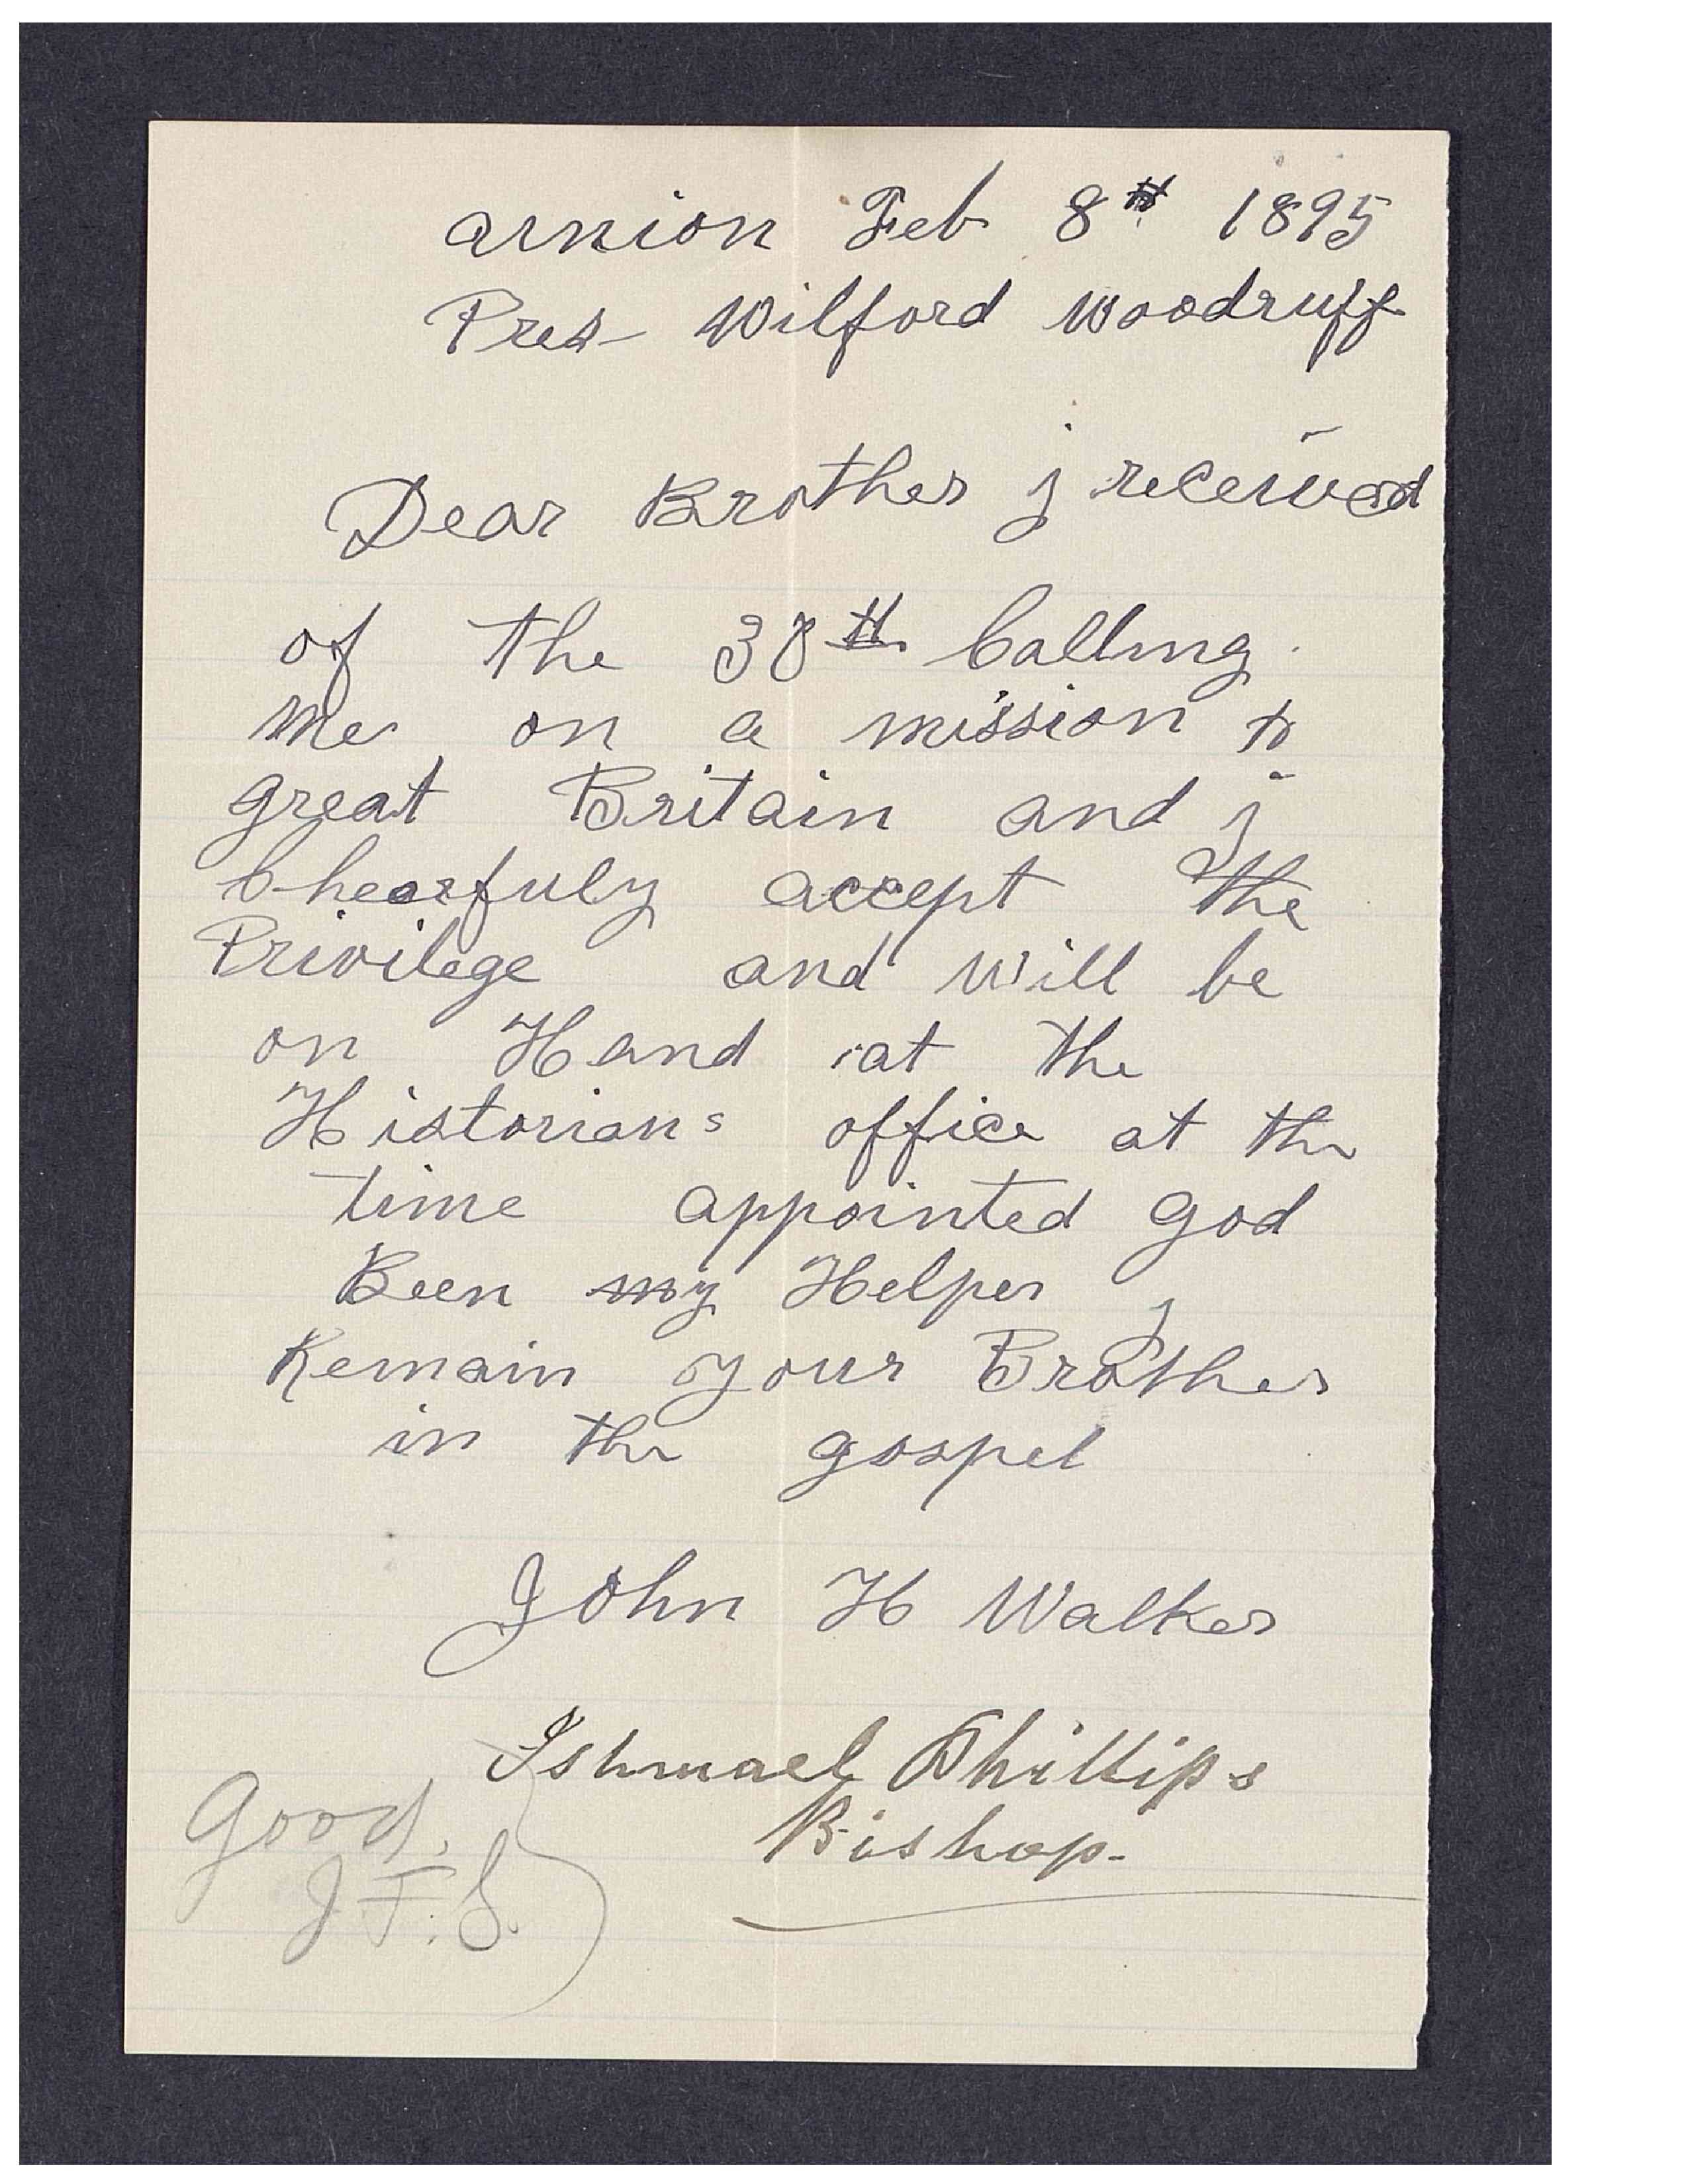 arnion Feb 8th 1895
Pres Wilford Woodruff
Dear Brother j received
of the 30th Calling
me on a mission to
great Britain and j
Cheerfuly accept the
Privilege and will be
on Hand at the
Historians office at the
time appointed god
Been my Helper j
Remain your Brother
in the gospel
John H Walker
Ishmael Phillips
Bishop.
Good.
J. F. S.